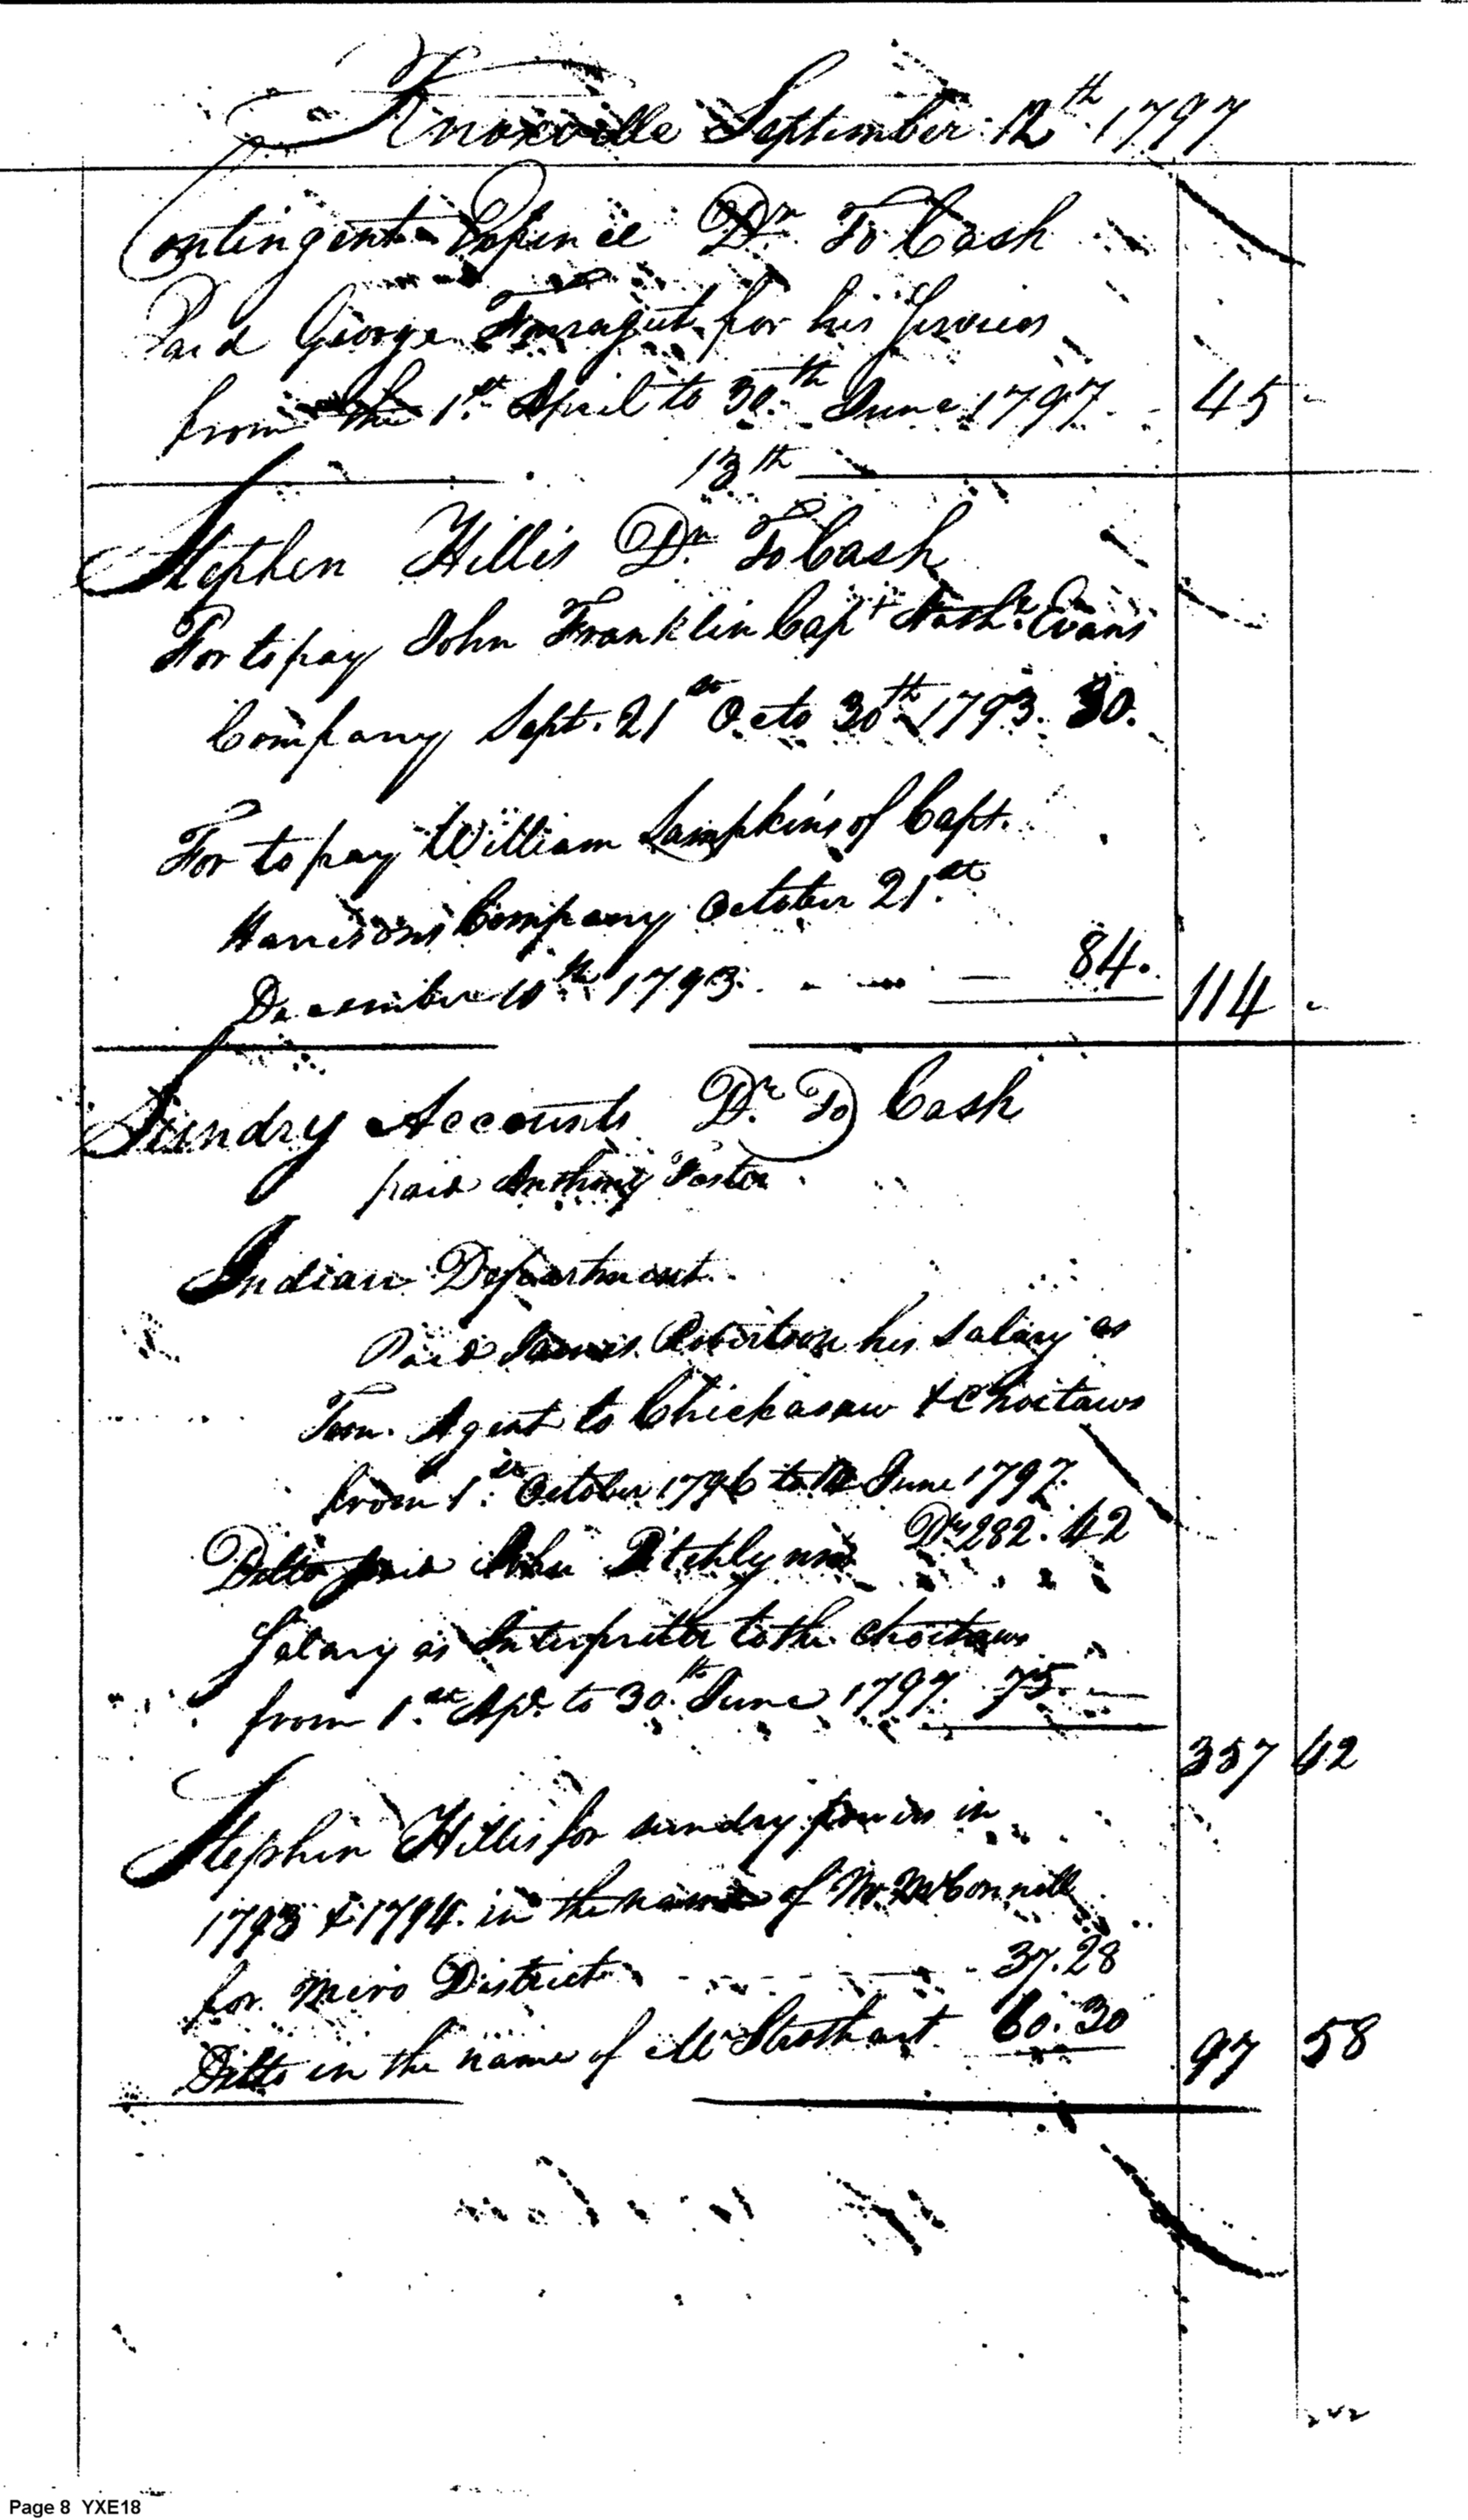 Knoxville September 12th 1797
Contingent Expence Dr. To Cash
Paid George Farragut for his Services
from the 1st April to 30th June 1797. 45 -
13th
Stephen Hillis Dr. To Cash
For to pay John Franklin Capt Nathl. Evans
Company Sept. 21st Octo 30th 1793. 30.
For to pay William Lampkins of Capt.
Harrisons Company October 21st
December 10th 1793. - - - 84. 114 -
Sundry Accounts Dr. To Cash
paid Anthony Foster
Indian Department.
Paid James Robertson his Salary as
Tem. Agent to Chickasaw & Choctaws
from 1st October 1796 to June 1797.
Drs 282.42
Ditto paid John Pitchlynn
Salary as Interpreter to the Choctaws
from 1st Apl. to 30th June 1797. 75. -
357 42
Stephen Hillis for sundry in
1793 & 1794. in the name of McConnell
for Mero District - - - - 37.28
Ditto in the name of 60.30 97 58
Page 8 YXE18